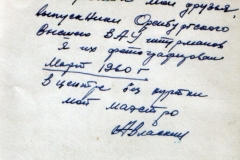 мои друзья,
выпускники Оренбургского
высшего В.А.У. штурманов
я их фотографировал
Март 1960 г
в центре без куртки
мой маэстро